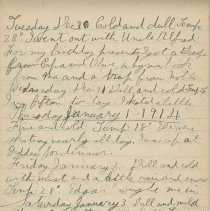 Tuesday Dec 30 Cold and dull Temp
28° I went out with Uncle Alfred.
For my birthday presents I got a
from Papa and Olive, a hymn book
from Ma and a from
Wednesday Dec 31 Dull and cold Temp
I am fifteen to-day. I skated a little
Thursday January 1-1914
Fine and cold. Temp 18° We were
skating nearly all day. I was up at
for dinner.
Friday January 2 Dull and cold
with mist and a little rain and snow
Temp. 28° Edgar me in
Saturday January 3 Dull and mild